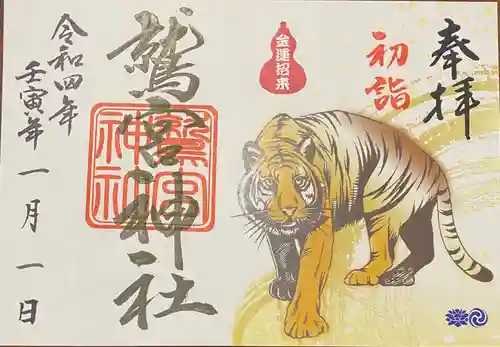 奉拝
初詣
金運招来
鷲宮神社
鷲宮
神社
令和四年
壬寅年
一月一日